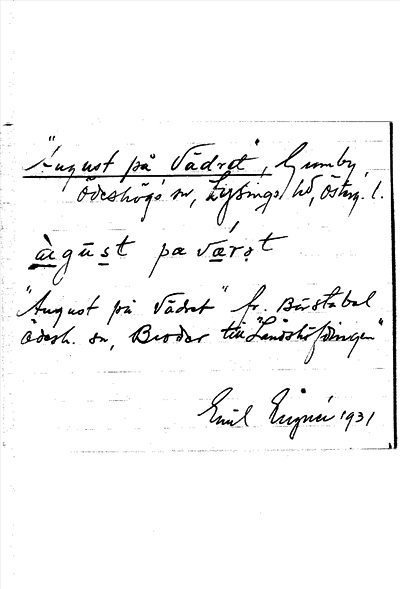 "August på Vädret", Gumby,
Ödeshögs sn, Lysings hd, Österg. l.
àgust pa værət
"August på Vädret" fr. Bårstabal
Ödesh. sn, Broder till "Landshöfdingen"
Emil 1931